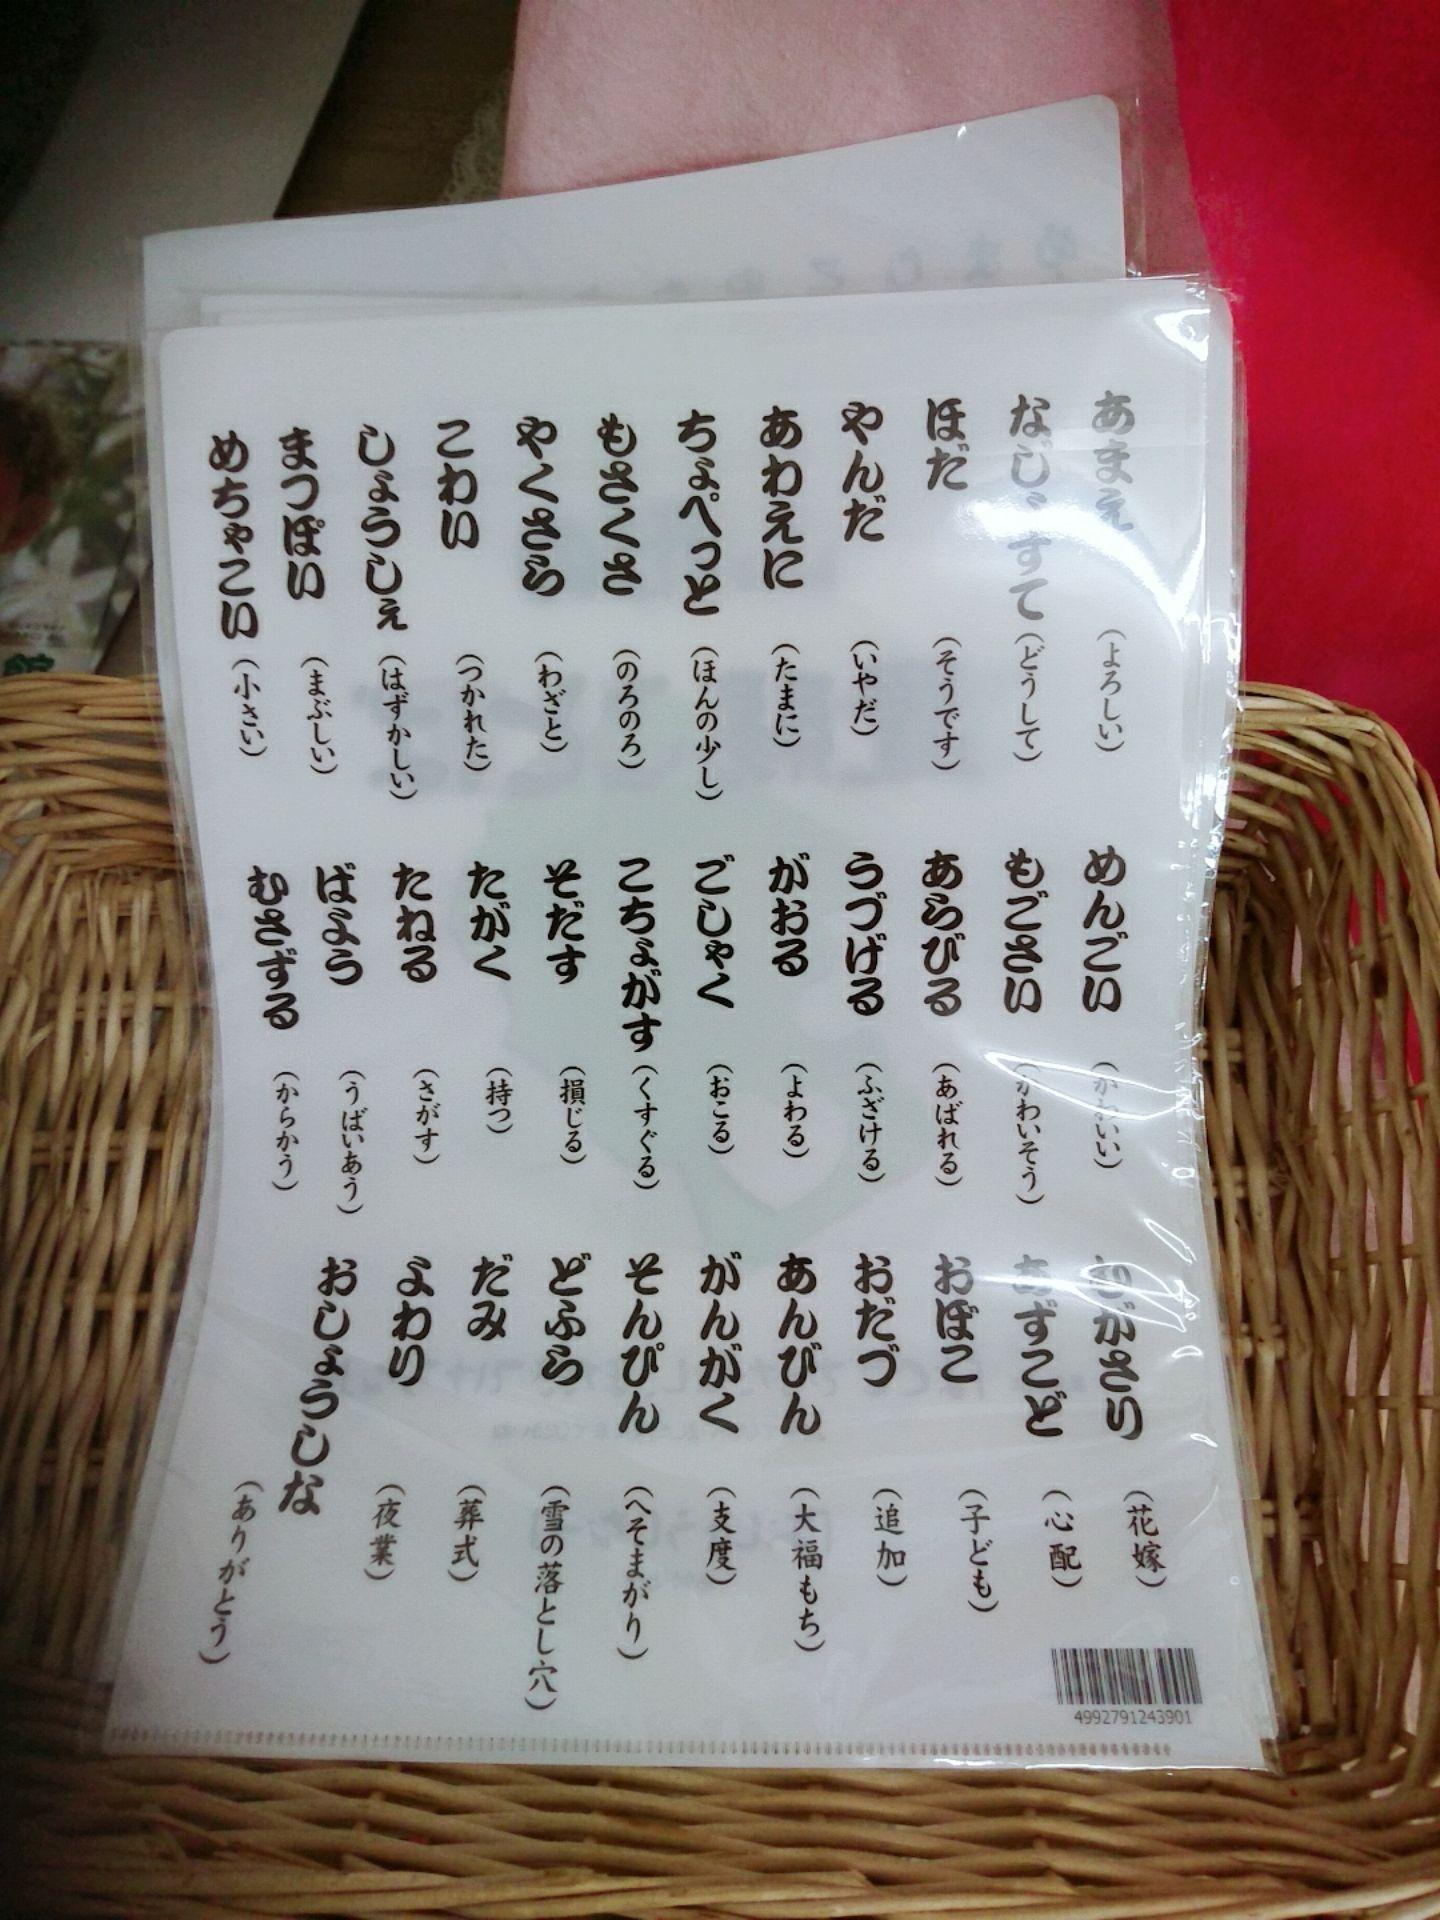 あまえ（よろしい）
なじょすて（どうして）
ほだ（そうです）
やんだ（いやだ）
あわえに（たまに）
ちょぺっと（ほんの少し）
もさくさ（のろのろ）
やくさら（わざと）
こわい（つかれた）
しょうしぇ（はずかしい）
まつぽい（まぶしい）
めちゃこい（小さい）
めんごい（かわいい）
もごさい（かわいそう）
あらびる（あばれる）
うづげる（ふざける）
がおる（よわる）
ごしゃく（おこる）
こちょがす（くすぐる）
そだす（損じる）
たがく（持つ）
たねる（さがす）
ばよう（うばいあう）
むさずる（からかう）
むがさり（花嫁）
あずこど（心配）
おぼこ（子ども）
おだづ（追加）
あんびん（大福もち）
がんがく（支度）
そんぴん（へそまがり）
どふら（雪の落とし穴）
だみ（葬式）
よわり（夜業）
おしょうしな（ありがとう）
4992791243901